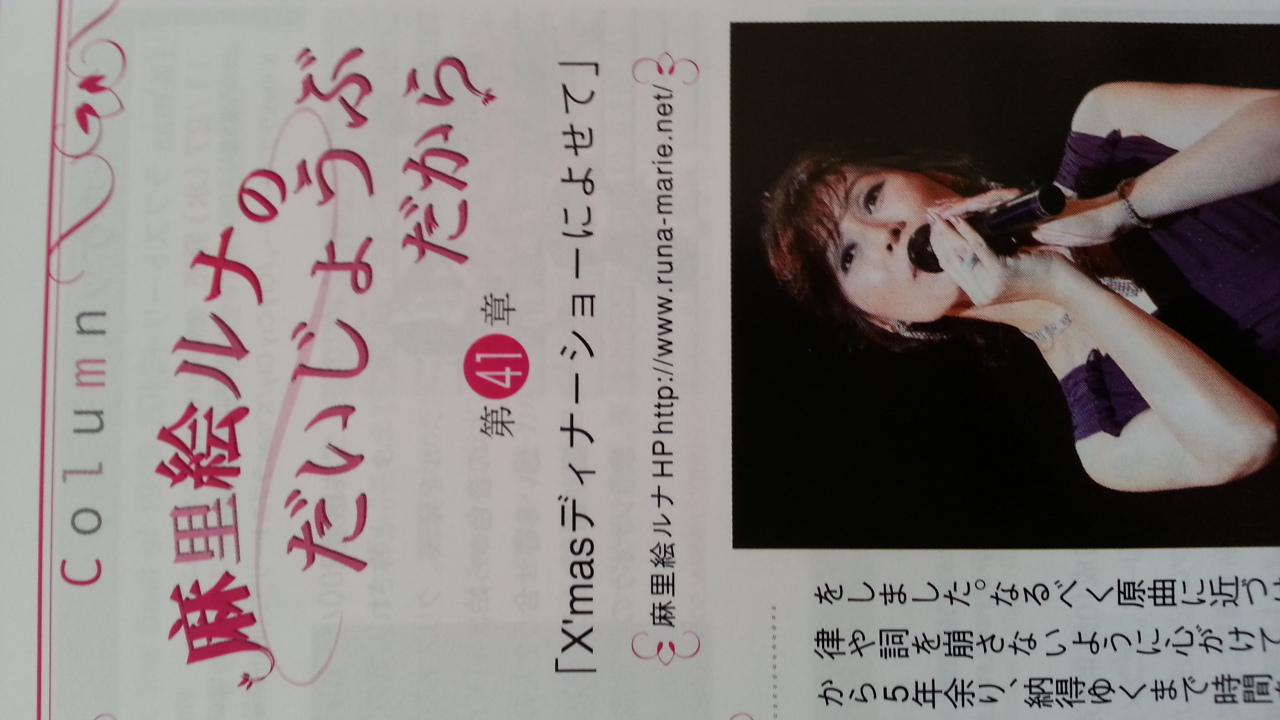 Column
麻里絵ルナの
だいじょうぶ
だから
第41章
「X'masディナーショーによせて」
麻里絵ルナHP http://www.runa-marie.net/
をしました。なるべく原曲に近づ
律や詞を崩さないように心がけて
から5年余り、納得ゆくまで時間